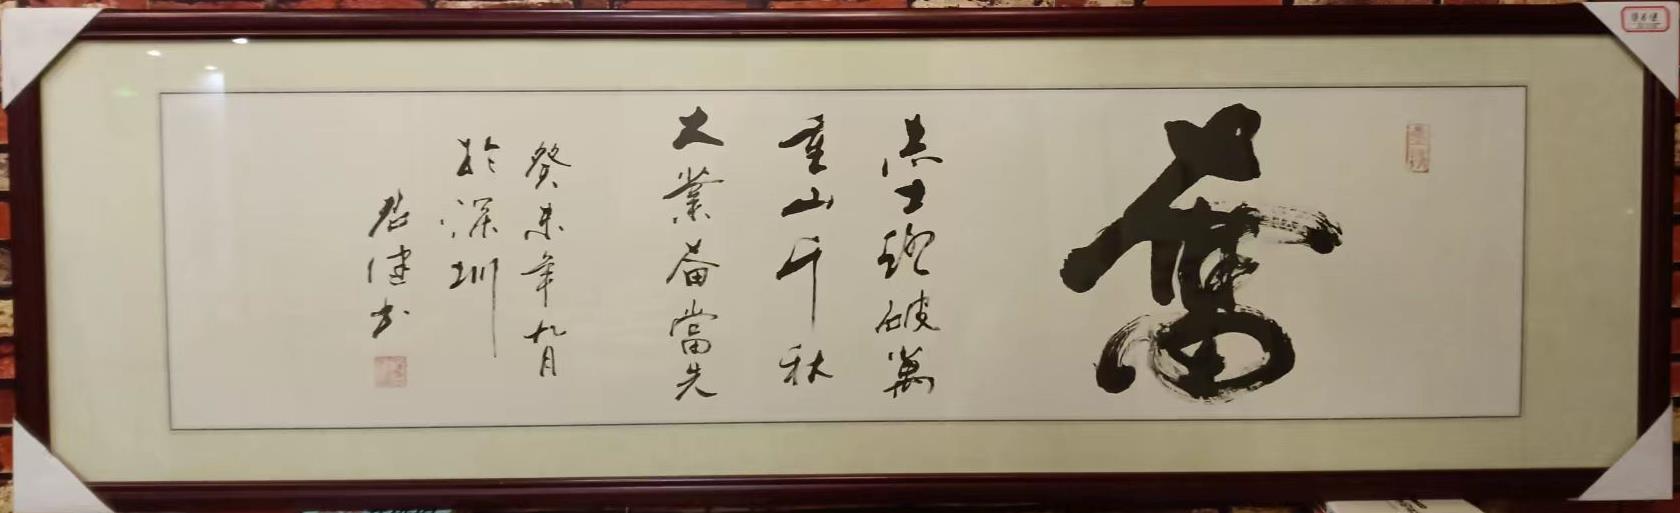 奮
志士踏破萬
重山千秋
大業奋當先
癸未年九月
於深圳
君健书